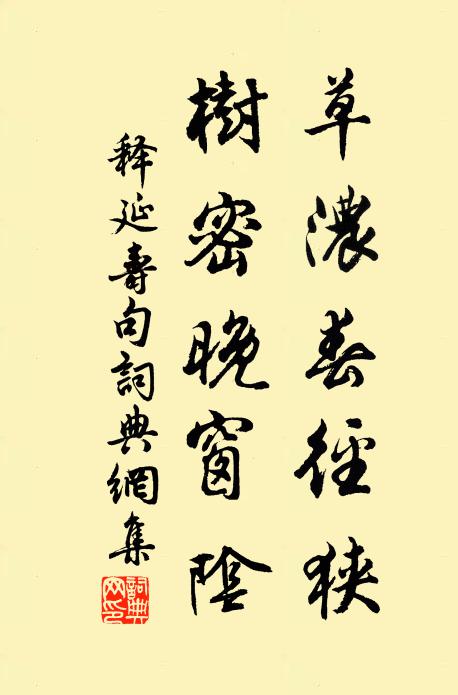 草濃春徑狹
樹密晚窗陰
釋延壽句詞典網集
詞典網印